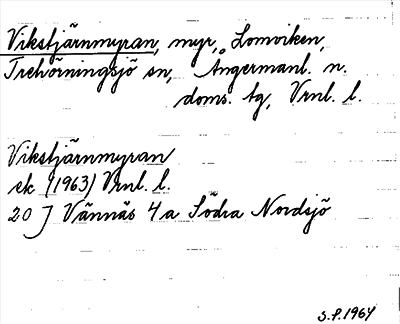 Vikstjärnmyran, myr, Lomviken,
Trehörningsjö sn, Ångermanl. n.
doms. tg, Vrnl. l.
Vikstjärnmyran
ek (1963) Vrnl. l.
20 J Vännäs 4a Södra Nordsjö
S.P. 1964